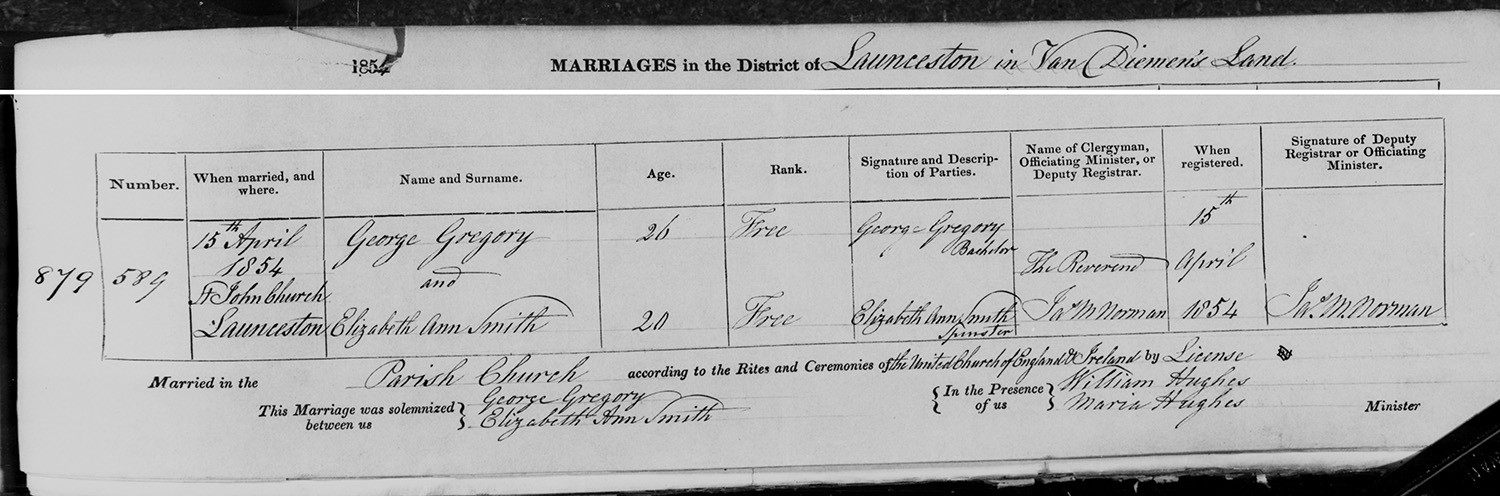 1854
MARRIAGES in the District of Launceston in Van Diemen's Land.
Number.
When married, and
where.
Name and Surname.
Age.
Rank.
Signature and Descrip-
tion of Parties.
Name of Clergyman,
Officiating Minister, or
Deputy Registrar.
When
registered.
Signature of Deputy
Registrar or Officiating
Minister.
879
589
15th April
1854
St John Church
Launceston
George Gregory
and
Elizabeth Ann Smith
26
20
Free
Free
George Gregory
Bachelor
Elizabeth Ann Smith
Spinster
The Reverend
Jas M Norman
15th
April
1854
Jas M Norman
Married in the Parish Church according to the Rites and Ceremonies of the United Church of England & Ireland by License
This Marriage was solemnized
between us
George Gregory
Elizabeth Ann Smith
In the Presence
of us
William Hughes
Maria Hughes
Minister